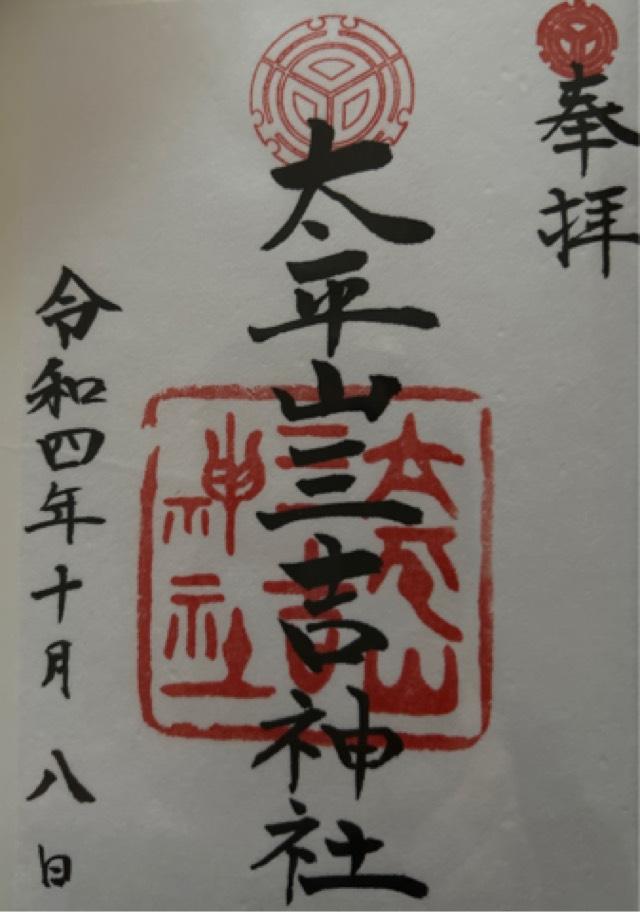 奉拝
太平山三吉神社
太平山
三吉
神社
令和四年十月八日